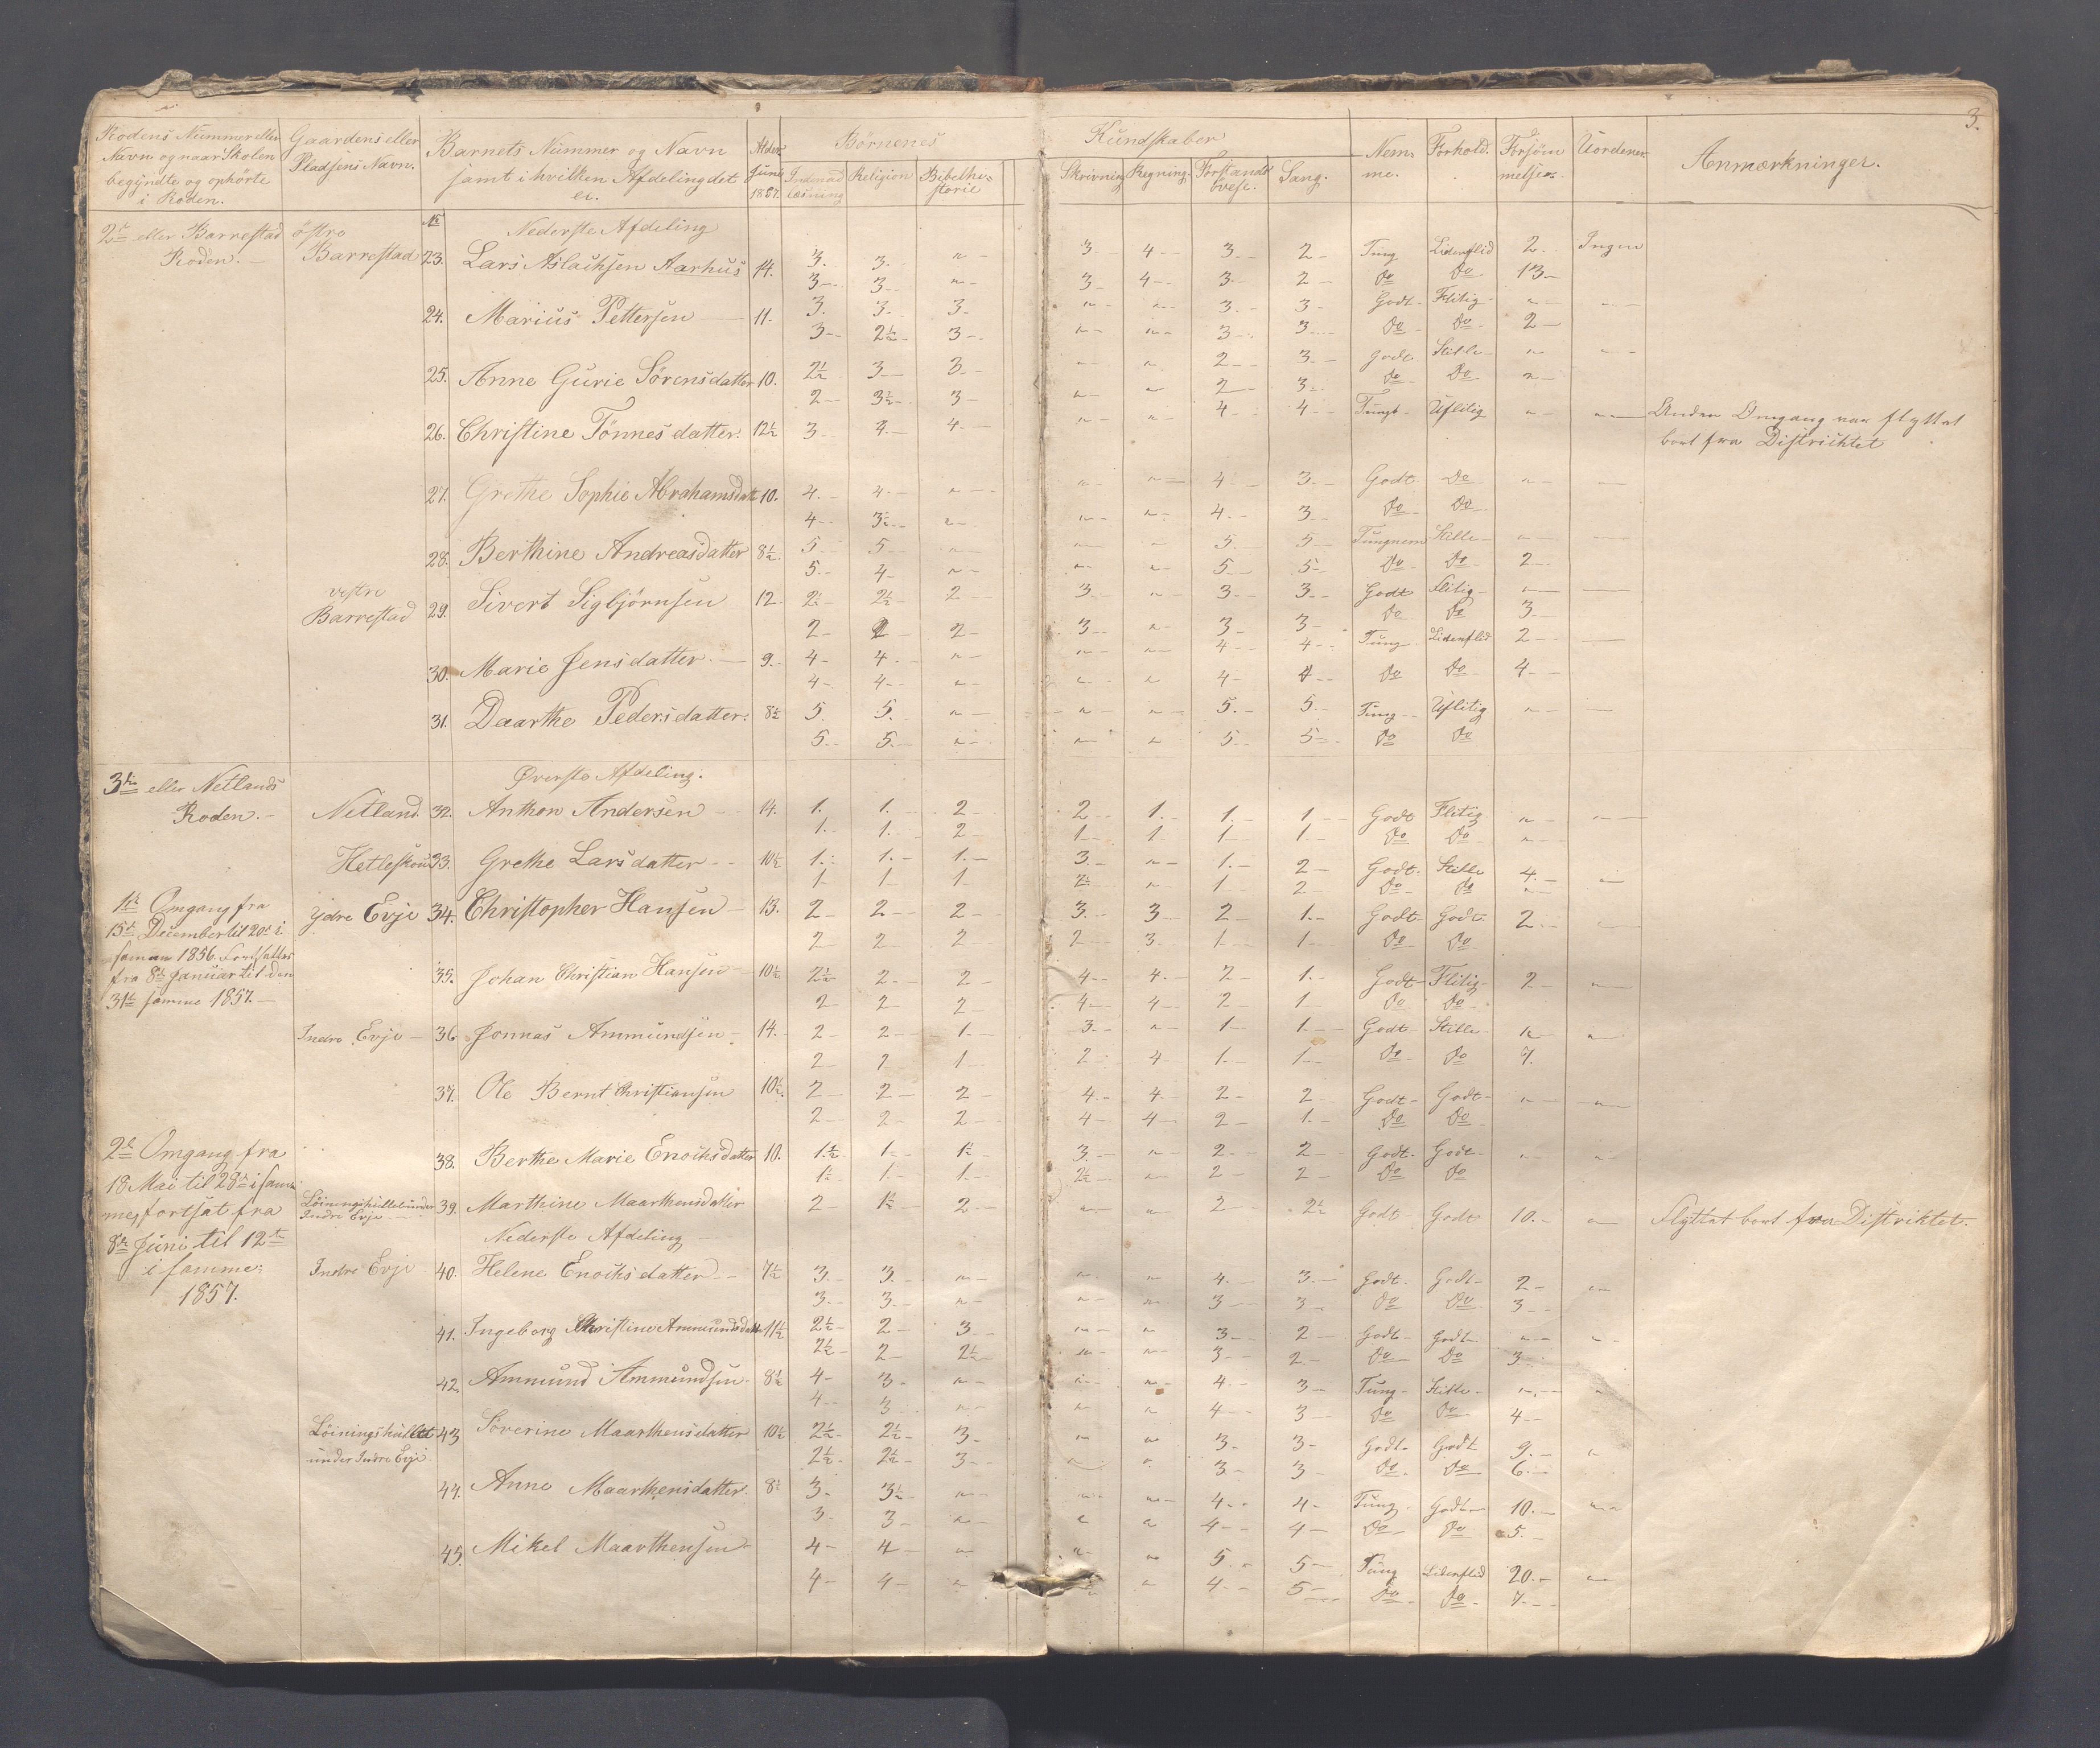 3.
Rodens Nummer eller Navn og naar Skolen begyndte og ophörte i Roden.
Gaardens eller Pladsens Navn.
Barnets Nummer og Navn samt i hvilken Afdeling det er.
Alder Juni 1857.
Börnenes Kundskaber
Religion
Bibelhistorie
Skrivning
Regning.
Forstands övels.
Sang.
Nemme.
Forhold.
Forsömmelser.
Uordener
Anmærkninger.
2den eller Barrestad Roden. östre Barrestad
No Nederste Afdeling
23. Lars Aslachsen Aarhus 14. 3. 3. " 3 4 3 2 Tung Lidenflid 2. Ingen
3 3 " 3 4 3 2 Do Do 13
24. Marius Pettersen 11. 3. 3. 3. " " 3 3 Godt Flitig " "
3 2½ 3 " " 3 3 Do Do 2
25. Anne Gurie Sörensdatter 10. 2½ 3 3 " " 2 3 Godt Stille " "
2 3½ 3 " " 2 3 Do Do "
26. Christine Tönnesdatter. 12½ 3 3 4 " " 4 4 Tungt Uflitig " " Anden Omgang var flyttet
bort fra Districhtet
27. Grethe Sophie Abrahamsdatt 10. 4 4 " " " 4 3 Godt Do " "
4 3½ " " " 4 3 Do Do
28. Berthine Andreasdatter 8½ 5 5 " " " 5 5 Tungnem Stille " "
5 4 " " " 5 5 Do Do 2
vestre Barrestad
29. Sivert Sigbjörnsen 12 2½ 2½ 2 3 " 3 3 Godt Flitig " "
2 2 2 3 " 3 3 Do Do 3
30. Marie Jensdatter. 9. 4 4 " " " 4 4 Tung Lidenflid 2 "
4 4 " " " 4 4 Do Do 4
31. Daarthe Pedersdatter. 8½ 5 5. " " " 5 5 Tung Uflitig " "
5 5 " " " 5 5 Do Do
3die eller Netlands Roden.
Øverste Afdeling.
Netland 32. Anthon Andersen 14. 1. 1. 2 2 1. 1. 1 Godt Flitig " "
1. 1. 2 1 1 1 1 Do Do "
33. Grethe Larsdatter 10½ 1. 1. 1. 3. " 1. 2 Godt Stille 4. "
1 1 1 2½ " 1 2 Do Do "
1ste Omgang fra
15de December til 20de i
samme 1856. Fortsattes
fra 8de Januar til den
31te samme 1857.
Ydre Evje 34. Christopher Hansen 13. 2 2 2 3. 3 2 1. Godt Godt 2. "
2 2 2 2 3 1 1 Do Do
35. Johan Christian Hansen 10½ 2½ 2 2 4 4 2 1. Godt Flitig 2 "
2 2 2 4 4 2 1 Do Do
Indre Evje 36. Jonnas Ammundsen 14. 2 2 1. 3 " 1 1 Godt Stille " "
2 2 1 2 4 1 1 Do Do 7.
37. Ole Bernt Christiansen 10½. 2 2 2 4 4 2 2 Godt Godt " "
2 2 2 4 4 2 1 Do Do
2den Omgang fra
18 Mai til 28de i sam
me, fortsat fra
8de Juni til 12te
i samme
1857.
38. Berthe Marie Enochsdatter 10. 1½ 1 1½ 3 " 2 2 Godt Godt " "
1½ 1 1 2½ " 2 2 Do Do
Indre Evje 39. Marthine Maarthensdatter 2 1½ 2 " " 2 2½ Godt Godt 10. " Flyttet bort fra Distriktet.
Nederste Afdeling
Indre Evje 40. Helene Enochsdatter 7½ 3. 3. " " " 4 3 Godt Godt 2 "
3 3 " " " 3 3 Do Do 3
41. Ingeborg Christine Ammundsdatt 11½ 2½ 2 3 " " 3 2 Godt Godt " "
2½ 2 2½ " " 3 2 Do Do 3
42. Ammund Ammundsen 8½ 4 3 " " " 4 3 Tung Stille " "
4 3 " " " 4 3 Do Do 4
Löiningshullet under Indre Evje
43 Söverine Maarthensdatter 10½ 2½ 2½ 3 " " 3 3 Godt Godt 9. "
2½ 2½ 3 " " 3 3 Do Do 6.
44. Anne Maarthensdatter. 8½ 3 3½ " " " 4 4 Tung Godt 10. "
3 3 " " " 4 4 Do Do 5.
45. Mikel Maarthensen 4 4 " " " 5 5 Tung Lidenflid 20. "
4 4 " " " 4 5 Do Do 7.